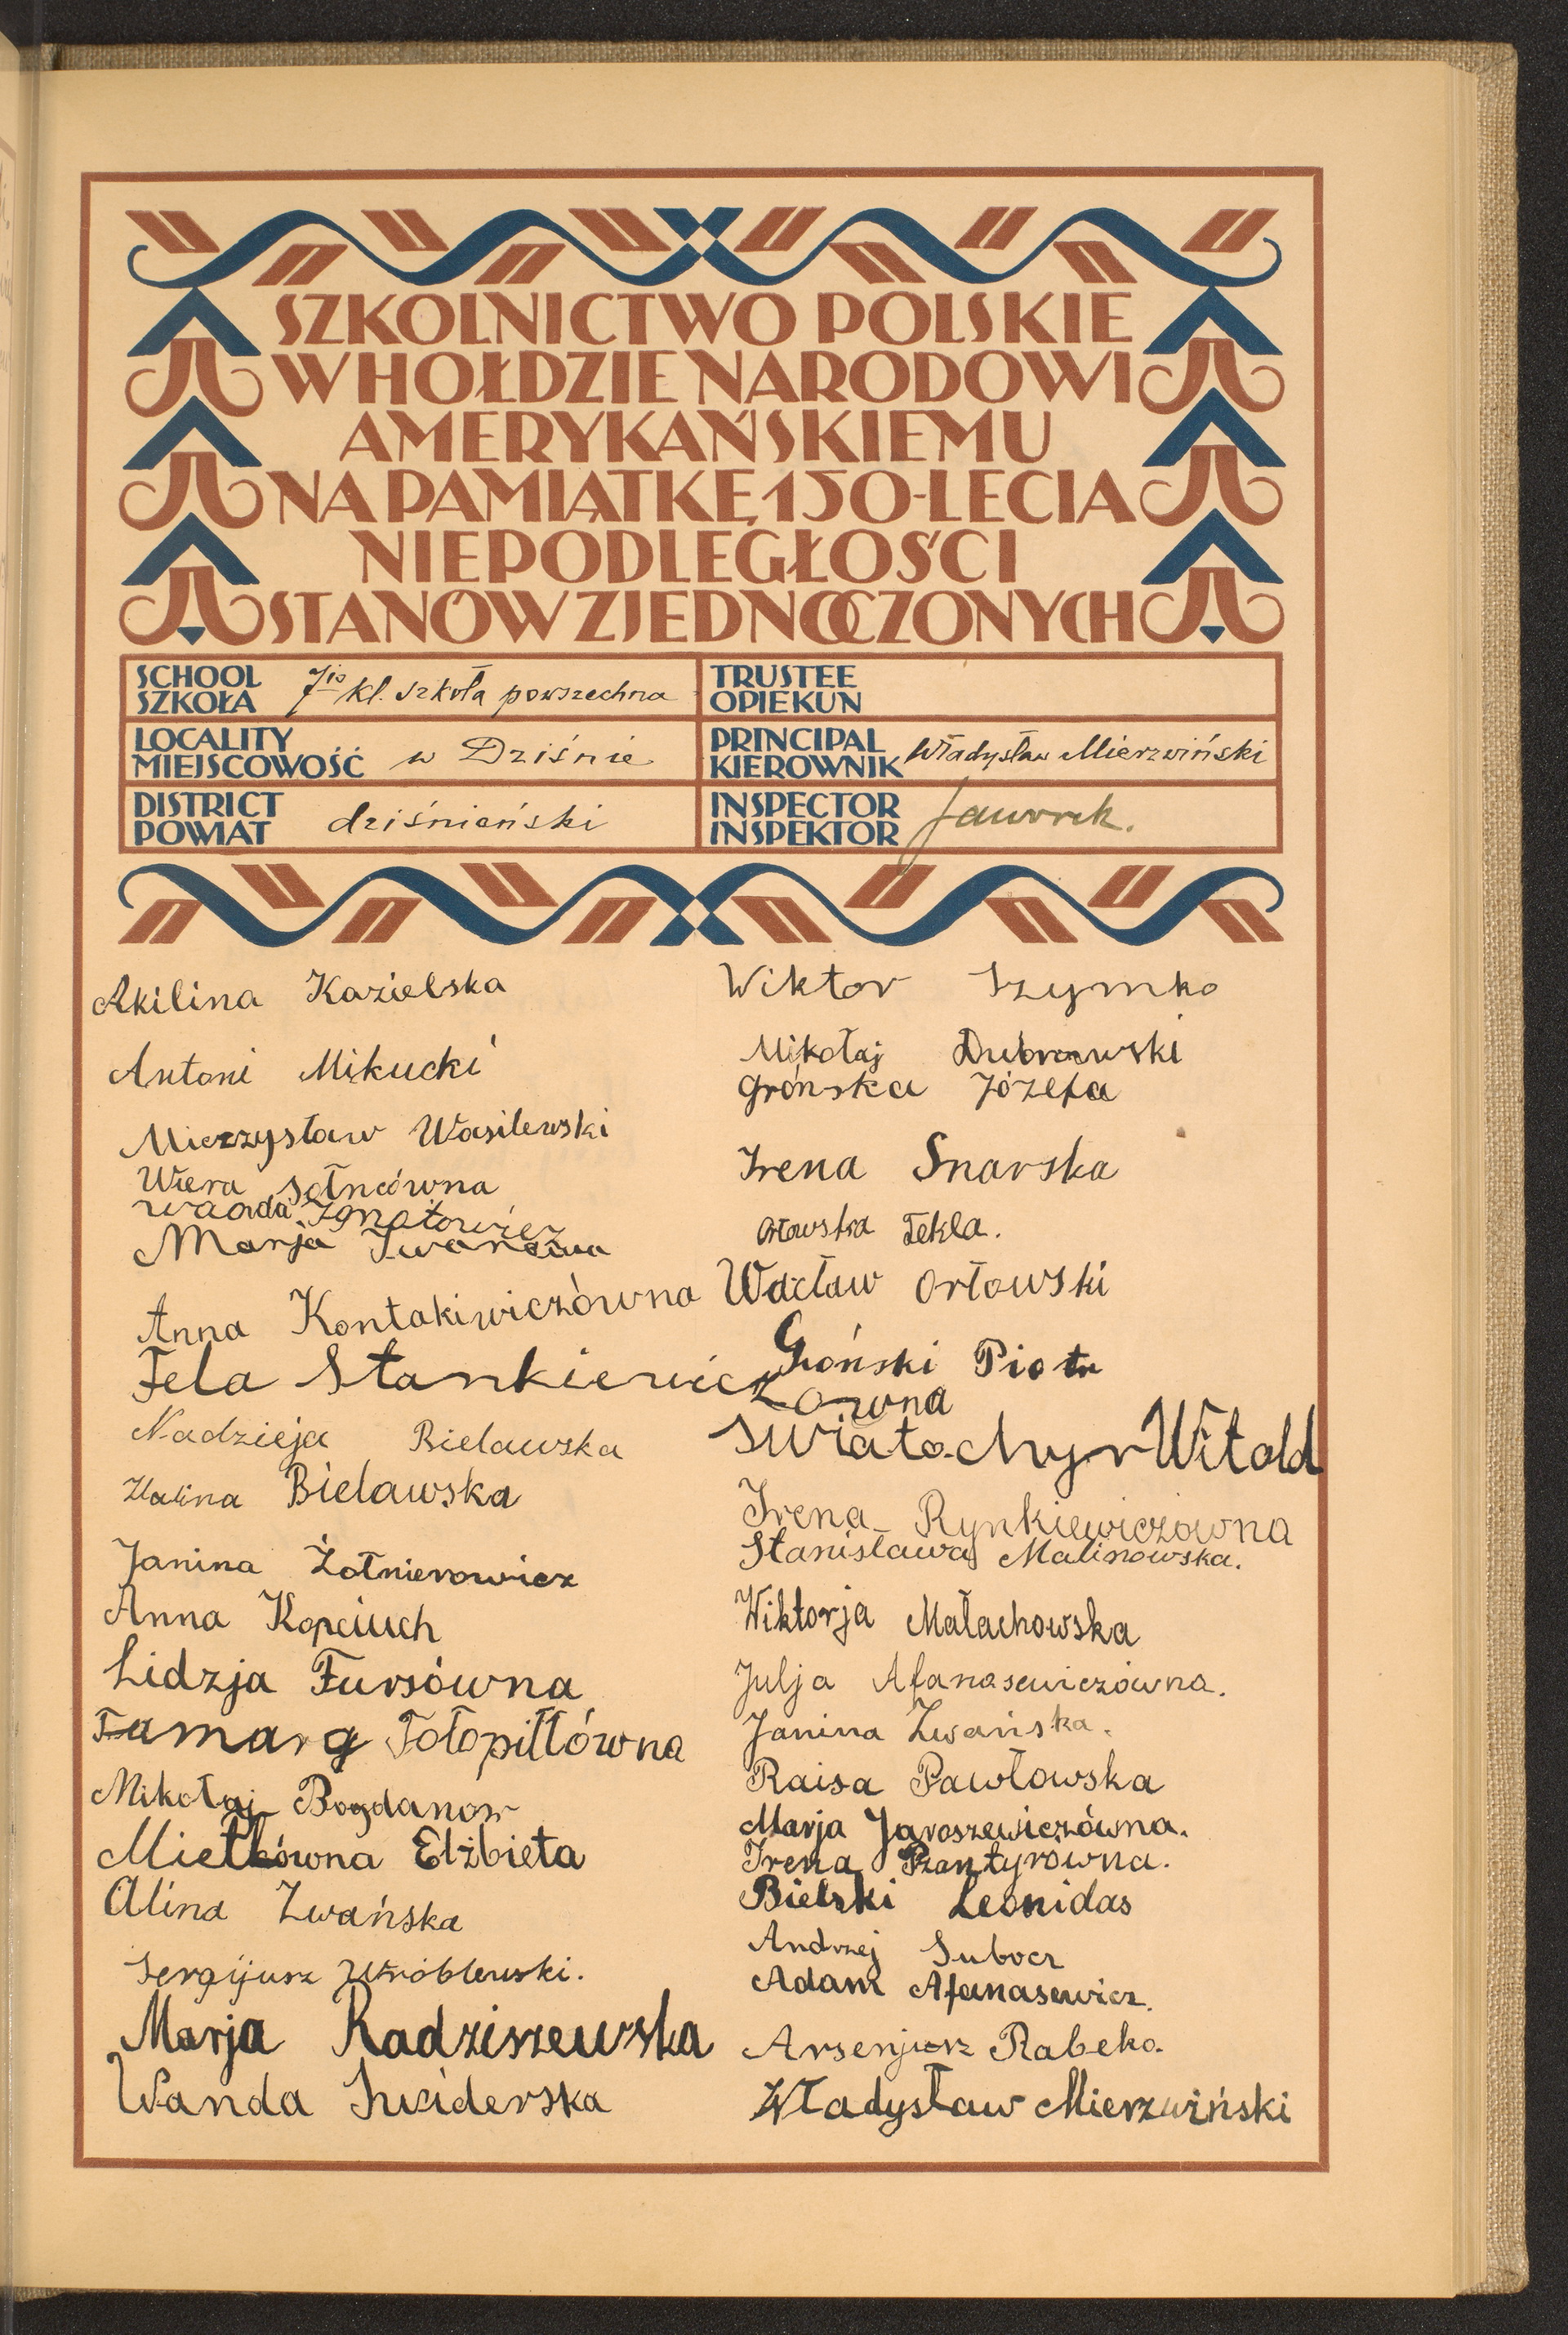 SZKOLNICTWO POLSKIE
W HOŁDZIE NARODOWI
AMERYKAŃSKIEMU
NA PAMIĄTKĘ 150-LECIA
NIEPODLEGŁOŚCI
STANÓW ZJEDNOCZONYCH
SCHOOL
SZKOŁA
7io kl. szkoła powszechna
TRUSTEE
OPIEKUN
LOCALITY
MIEJSCOWOŚĆ
w Dziśnie
PRINCIPAL
KIEROWNIK
Władysław Mierzwiński
DISTRICT
POWIAT
dziśnieński
INSPECTOR
INSPEKTOR
Jaworek.
Akilina Kazielska
Antoni Mikucki
Mieczysław Wasilewski
Wiera Sotncówna
Wanda Ignatowicz
Marja Iwanowa
Anna Kontakiwiczówna
Fela Stankiewiczówna
Nadzieja Bielawska
Halina Bielawska
Janina Żołnierowicz
Anna Kopciuch
Lidzja Fursówna
Tamara Tołopiłłówna
Mikołaj Bogdanow
Mietkówna Elżbieta
Alina Zwańska
Sergijusz Wróblewski.
Marja Radziszewska
Wanda Swiderska
Wiktor Szymko
Mikołaj Dubrowski
Grónska Józefa
Irena Snarska
Orłowska Tekla.
Wacław Orłowski
Groński Piotr
Swiatochyr Witold
Irena Rynkiewiczówna
Stanisława Malinowska.
Wiktorja Małachowska
Julja Afanasewiczówna.
Janina Zwańska.
Raisa Pawłowska
Marja Jaroszewiczówna.
Irena Pzantyrówna.
Bielski Leonidas
Andrzej Subocz
Adam Afanasewicz.
Arsenjusz Rabeko.
Władysław Mierzwiński